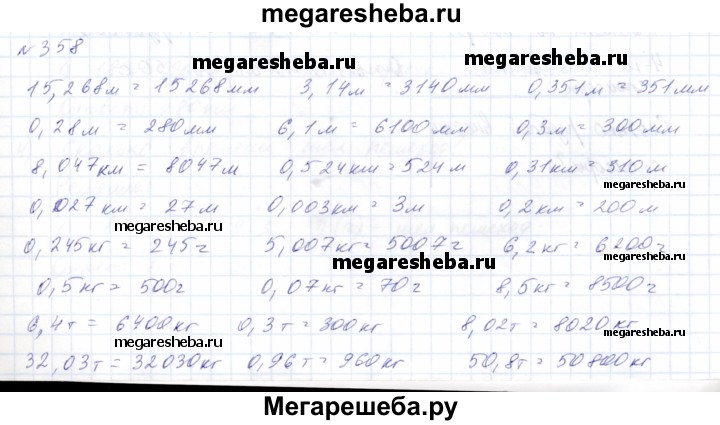 megaresheba.ru
№358
megaresheba.ru megaresheba.ru
15,268м = 15268мм 3,14м = 3140мм 0,351м = 351мм
0,28м = 280мм 6,1м = 6100мм 0,3м = 300мм
8,047км = 8047м 0,524км = 524м 0,31км = 310м
megaresheba.ru
0,027км = 27м 0,003км = 3м 0,2км = 200м
megaresheba.ru
0,245кг = 245г 5,007кг = 5007г 6,2кг = 6200г
megaresheba.ru
0,5кг = 500г 0,07кг = 70г 8,5кг = 8500г
6,4т = 6400кг 0,3т = 300кг 8,02т = 8020кг
megaresheba.ru
32,03т = 32030кг 0,96т = 960кг 50,8т = 50800кг
Мегарешеба.ру